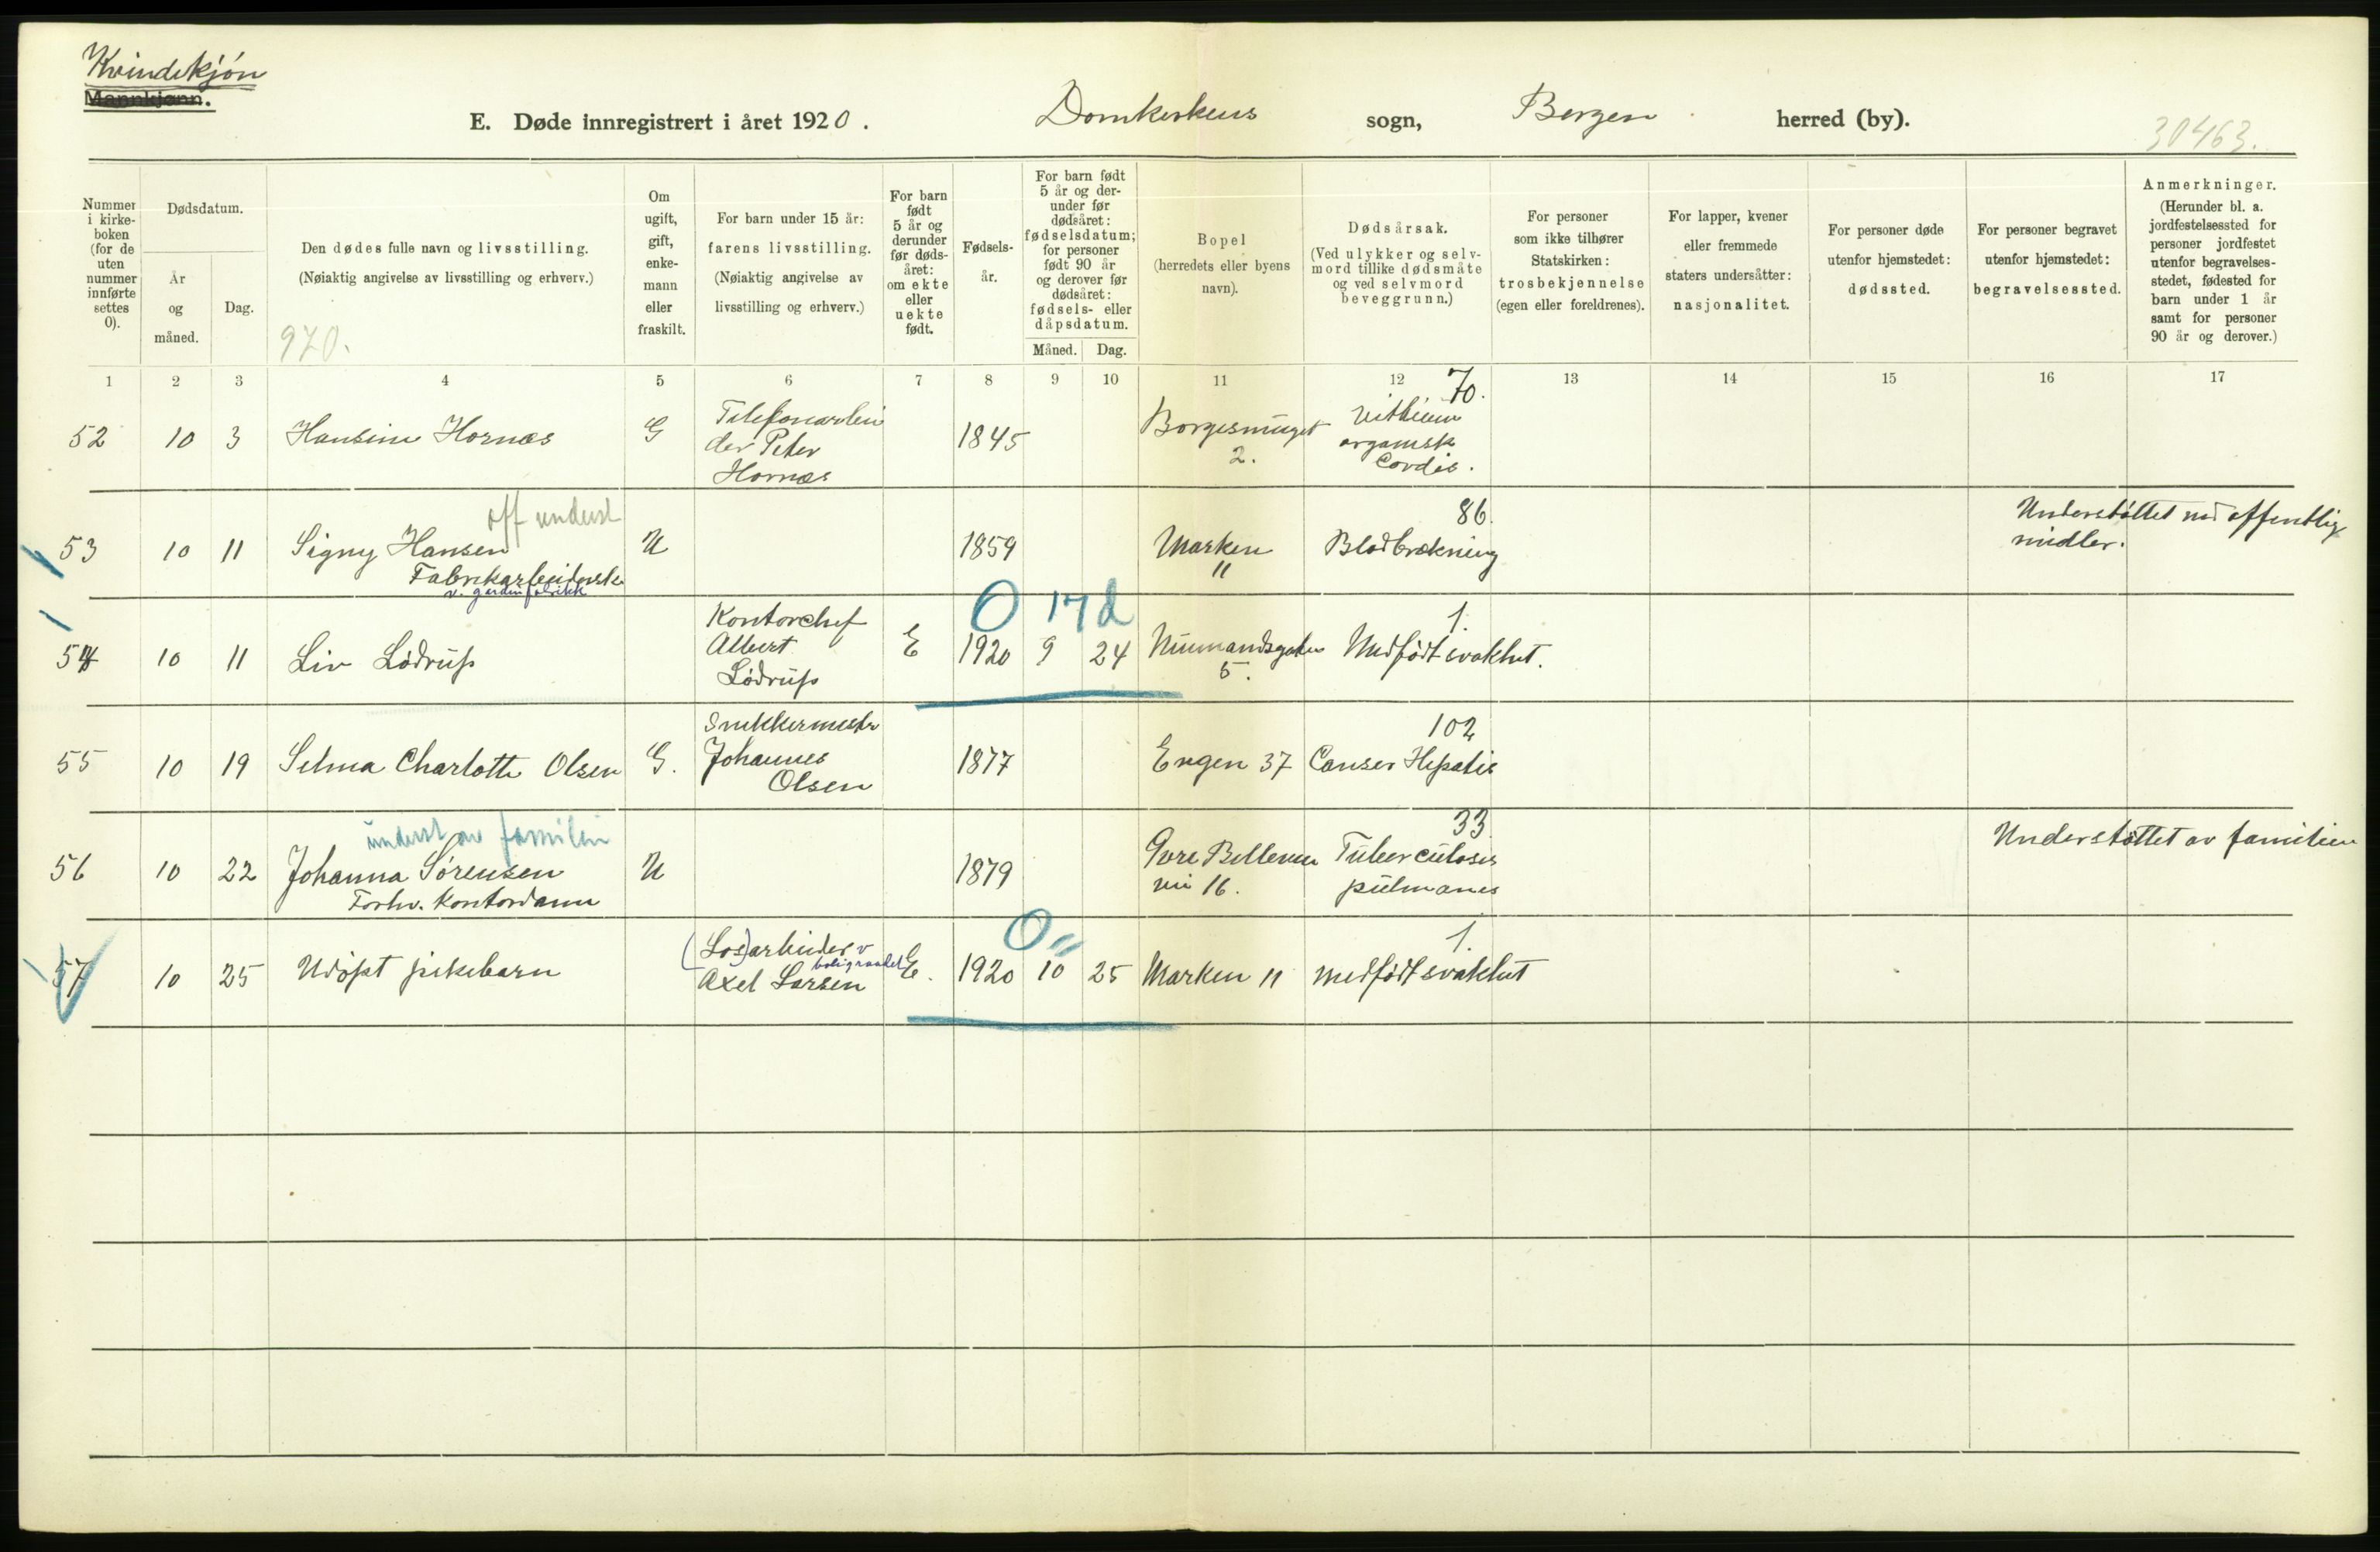 Kvindekjøn
Mannkjønn.
E. Døde innregistrert i året 1920.
Domkirkens sogn, Bergen herred (by).
30463.
Nummer i kirke-boken (for de uten nummer innførte settes 0).
Dødsdatum.
År og måned.
Dag.
Den dødes fulle navn og livsstilling.
(Nøiaktig angivelse av livsstilling og erhverv.)
970.
Om ugift, gift, enke-mann eller fraskilt.
For barn under 15 år:
farens livsstilling.
(Nøiaktig angivelse av
livsstilling og erhverv.)
For barn født 5 år og derunder før døds-året: om ekte eller uekte født.
Fødsels-år.
For barn født 5 år og der-under før dødsåret: fødselsdatum; for personer født 90 år og derover før dødsåret: fødsels- eller dåpsdatum.
Måned. Dag.
Bopel
(herredets eller byens
navn).
Dødsårsak.
(Ved ulykker og selv-
mord tillike dødsmåte
og ved selvmord
beveggrunn.)
For personer
som ikke tilhører
Statskirken:
trosbekjennelse
(egen eller foreldrenes).
For lapper, kvener
eller fremmede
staters undersåtter:
nasjonalitet.
For personer døde
utenfor hjemstedet:
dødssted.
For personer begravet
utenfor hjemstedet:
begravelsessted.
Anmerkninger.
(Herunder bl. a.
jordfestelsessted for
personer jordfestet
utenfor begravelses-
stedet, fødested for
barn under 1 år
samt for personer
90 år og derover.)
1 2 3 4 5 6 7 8 9 10 11 12 13 14 15 16 17
52 10 3 Hansine Hornæs G Telefonarbei
der Peter
Hornæs
1845
2.
70.
Vitium
organisk
Cordis.
off underst
53 10 11 Signy Hansen
Fabrikarbeiderske
v. gardinfabrikk
U 1859 Marken
11
86.
Blodbrækning
Understøttet ved offentlig
midler.
54 10 11 Liv Lødrup
Kontorchef
Albert
Lødrup
E
0 17 d
1920 9 24
5.
1.
Medfødt svakhet.
55 10 19 Selma Charlotte Olsen G.
Snekkermester
Johannes
Olsen
1877 Engen 37
102
Canser Hepatis
underst av familien
56 10 22 Johanna Sørensen
Forhv. Kontordame
U 1879
16.
33.
Tuberculosis
pulmanes
Understøttet av familien
57 10 25 Udøpt pikebarn
(Løs)arbeider v
boligraadet
Axel Larsen
E.
0
1920 10 25 Marken 11
1.
medfødt svakhet